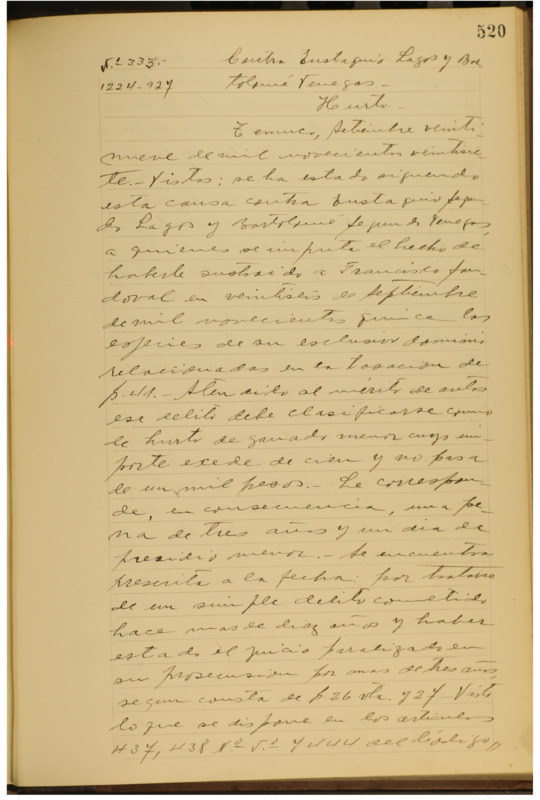 520
N.º 333.- Contra Eustaquio Lagos y Bar
1224-927 tolomé Venegas -
Hurto -
Temuco, Setiembre veinti-
nueve de mil novecientos veintisie-
te.- Vistos: se ha estado siguiendo
esta causa contra Eustaquio Segun
do Lagos y Bartolomé Segundo Venegas,
a quienes se imputa el hecho de
haberle sustraido a Francisco San
doval en veintiseis de septiembre
de mil novecientos quince las
especies de su exclusivo dominio
relacionadas en la tasacion de
f. 41.- Atendido al mérito de autos
ese delito debe clasificarse como
de hurto de ganado menor cuyo im-
porte excede de cien y no pasa
de un mil pesos.- Le correspon-
de, en consecuencia, una pe-
na de tres años y un dia de
presidio menor.- Se encuentra
prescrita a la fecha: por tratarse
de un simple delito cometido
hace mas de diez años y haber
estado el juicio paralizado en
su prosecusion por mas de tres años,
segun consta de f. 26 vta. y 27. Visto
lo que se dispone en los artículos
437, 438 Nº 444 del Código